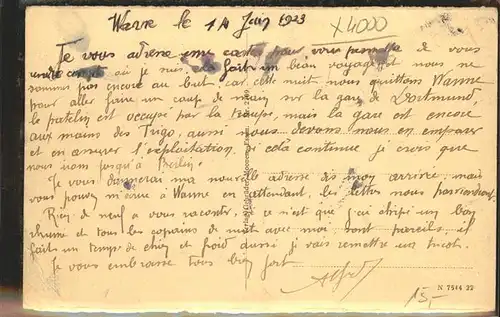 Wanne le 14 Juin 1923
x4000
Je vous adresse une carte pour vous permettre de vous
rendre compte où je suis. J'ai fait un beau voyage et nous ne
sommes pas encore au but car cette nuit nous quittons Wanne
pour aller faire un coup de main sur la gare de Dortmund,
le patelin est occupé par la troupe, mais la gare est encore
aux mains des Fritz, aussi nous devons nous en emparer
et en assurer l'exploitation. Si cela continue je crois que
nous irons jusqu'à Berlin.
Je vous donnerai ma nouvelle adresse dès mon arrivée, mais
vous pouvez m'écrire à Wanne en attendant, les lettres nous parviendront.
Rien de neuf à vous raconter, si ce n'est que j'ai chipé un bon
rhume et tous les copains de nuit avec moi sont pareils, il
fait un temps de chien et froid aussi je vais remettre un tricot.
Je vous embrasse tous bien fort
N 7544 22
15,-